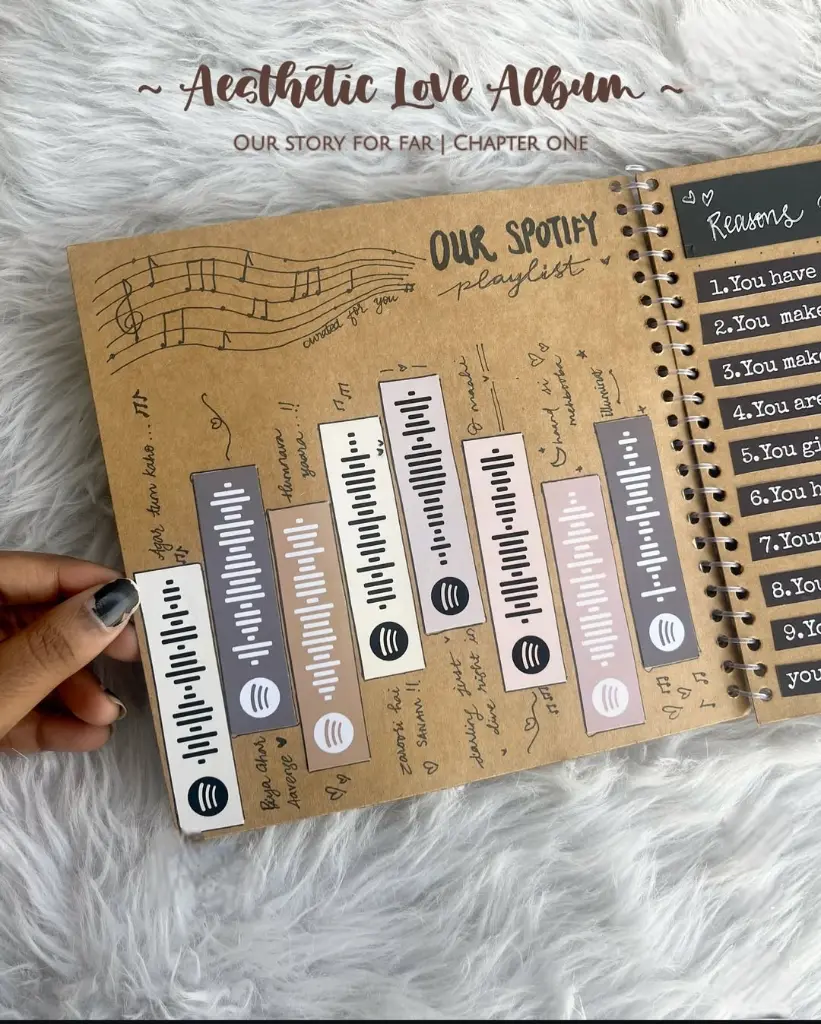 ~ Aesthetic Love Album ~
OUR STORY FOR FAR | CHAPTER ONE
OUR SPOTIFY
playlist
curated for you
Agar tum kaho...
Piya ghar
Aavenge
Hamnava
yaara...!!
Zaroosi hai
SANAM !!
darling just
dive right in
O maahi
haund si
mehbooba
illuminat
Reasons
1.You have
2.You make
3.You make
4.You are
5.You gi
6.You h
7.Your
8.You
9.Yo
you